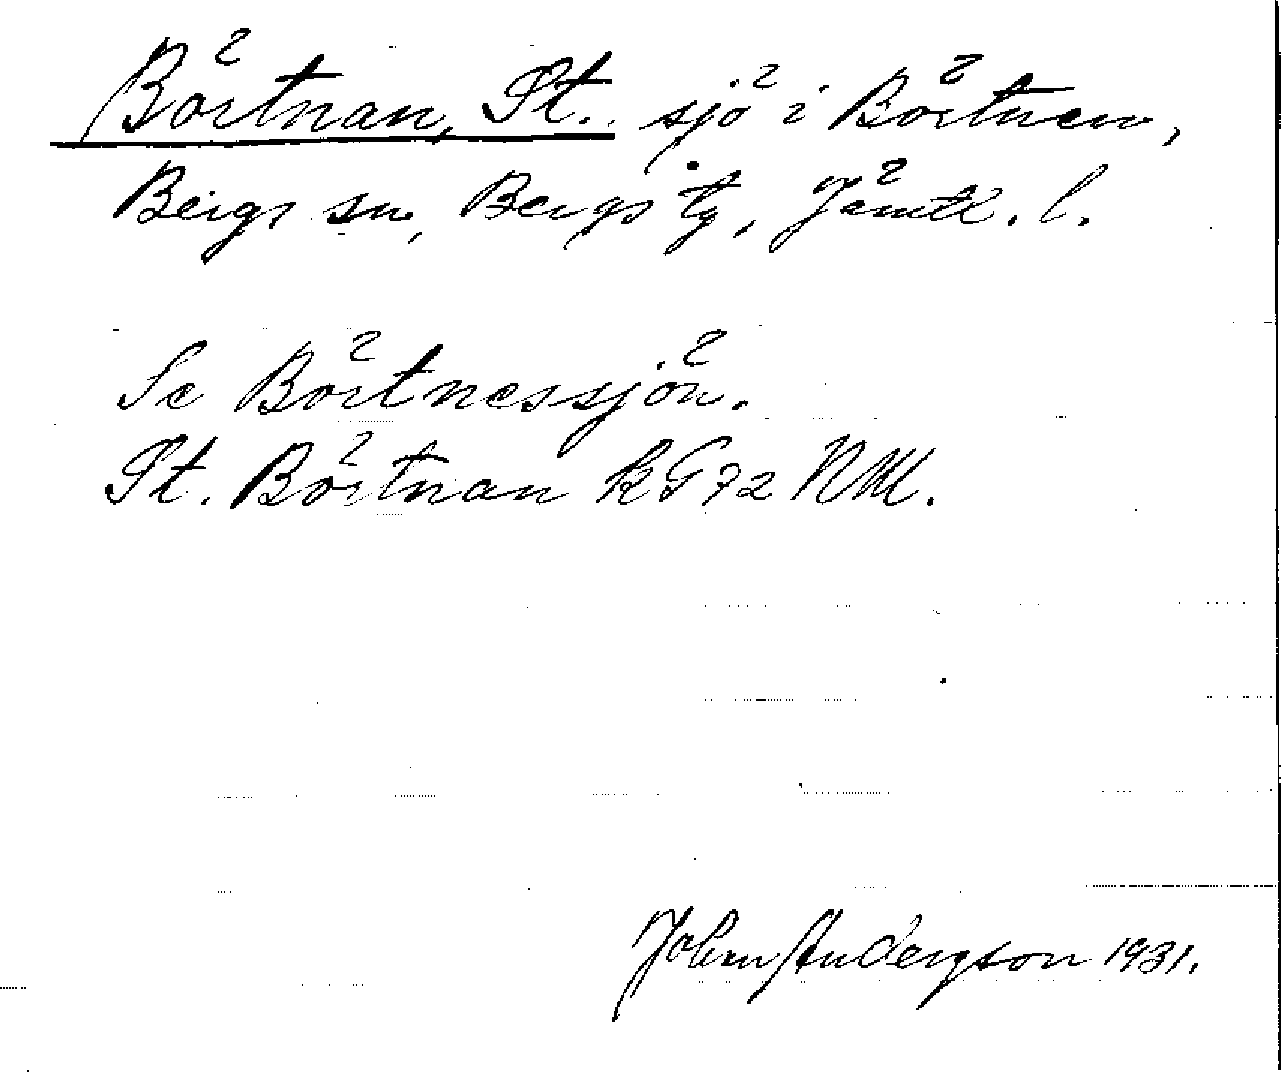 Börtnan, St. sjö i Börtnen,
Bergs sn, Bergs tg, Jämtl. l.
Se Börtnessjön.
St. Börtnan kG72 NM.
Johan Andersson 1931.